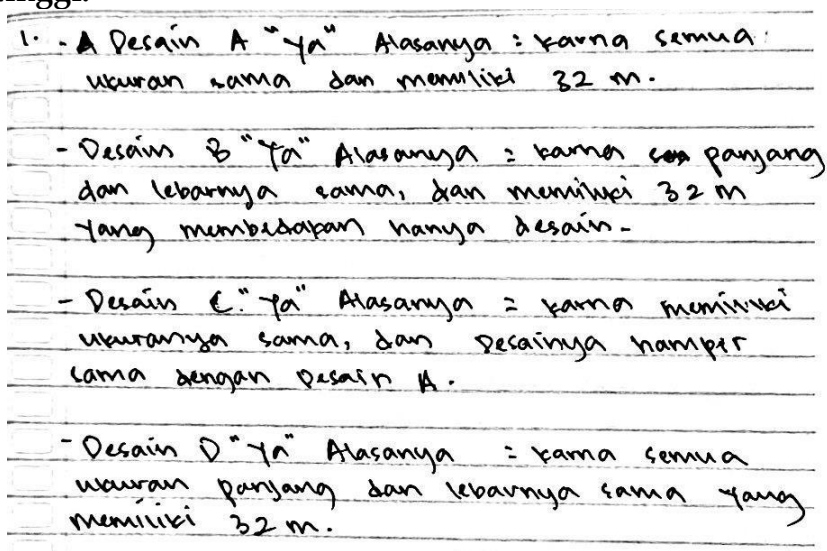 1. - A Desain A "Ya" Alasanya : karna semua
ukuran sama dan memiliki 32 m.
- Desain B "Ya" Alasanya : karna panjang
dan lebarnya sama, dan memiliki 32 m
yang membedakan hanya desain.
- Desain C "Ya" Alasanya = karna memiliki
ukuranya sama, dan Desainya hampir
sama dengan Desain A.
- Desain D "Ya" Alasanya = karna semua
ukuran panjang dan lebarnya sama yang
memiliki 32 m.